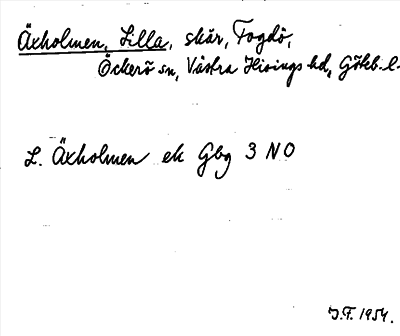 Äxholmen, Lilla, skär, Fogdö,
Öckerö sn, Västra Hisings hd, Göteb. l.
L. Äxholmen ek Gbg 3 NO
J.F. 1954.